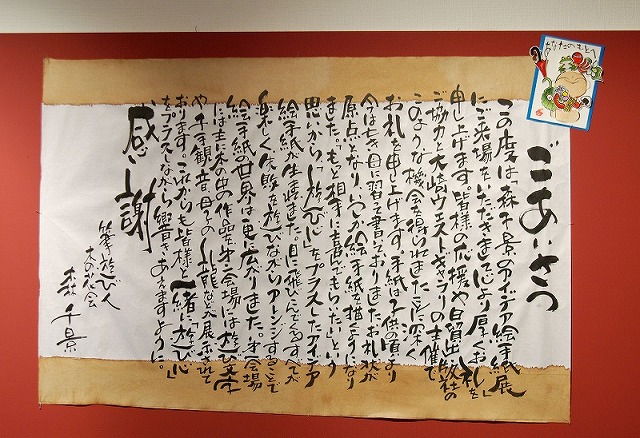 ごあいさつ
この度は「森千景のアイデア絵手紙展」
にご来場をいただきまして心より厚くお礼を
申し上げます。皆様の応援や日貿出版社の
ご協力と大崎ウエストギャラリーの主催で
このような機会を得られましたことに深く
お礼を申し上げます。手紙は子供の頃より
今は亡き母に習って書いておりましたお礼状が
原点となり、いつしか絵手紙を描くようになり
ました。「もっと相手に喜んでもらいたい」という
思いから「遊び心」をプラスしたアイデア
絵手紙が生まれました。目に飛びこんでくるすべてが
楽しく、失敗を遊びながらアレンジすることで
絵手紙の世界は更に広がりました。第一会場
には主に本の中の作品を第二会場には遊び文字
や千手観音、母の龍などが展示されて
おります。これからも皆様と一緒に「遊び心」
をプラスしながら響きあえますように。
感謝
筆遊び人
木のお会
森千景
あなたのもとへ